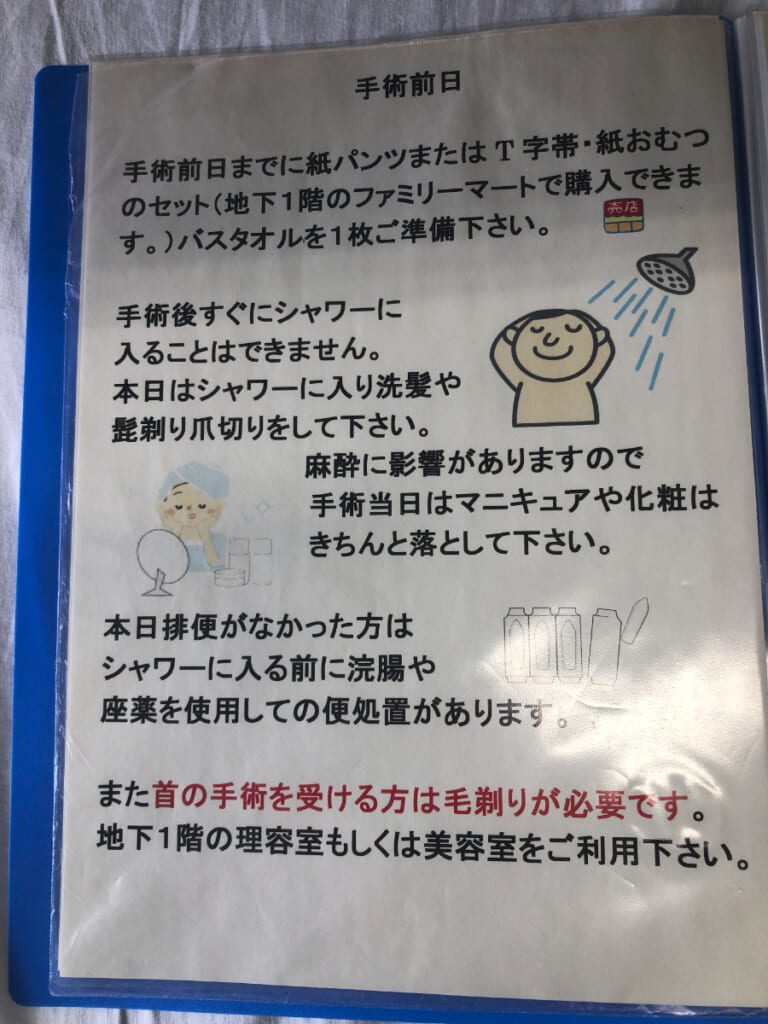 手術前日
手術前日までに紙パンツまたはT字帯・紙おむつ
のセット(地下1階のファミリーマートで購入できま
す。)バスタオルを1枚ご準備下さい。
売店
手術後すぐにシャワーに
入ることはできません。
本日はシャワーに入り洗髪や
髭剃り爪切りをして下さい。
麻酔に影響がありますので
手術当日はマニキュアや化粧は
きちんと落として下さい。
本日排便がなかった方は
シャワーに入る前に浣腸や
座薬を使用しての便処置があります。
また首の手術を受ける方は毛剃りが必要です。
地下1階の理容室もしくは美容室をご利用下さい。